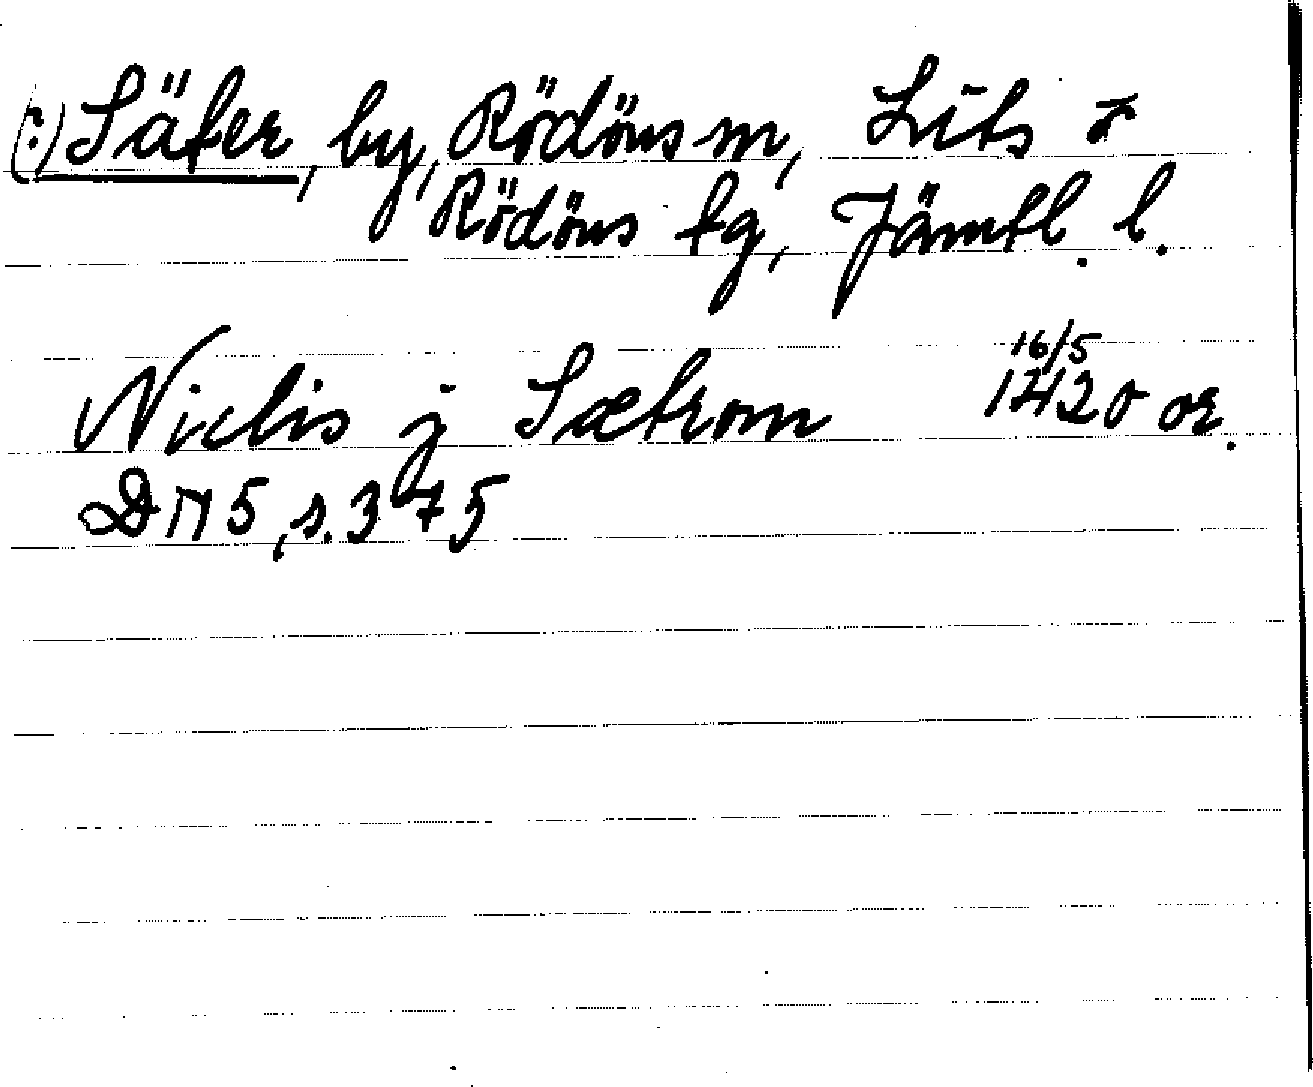 (:) Säter, by, Rödöns sn, Lits o
Rödöns tg, Jämtl. l.
Niclis j Sætrom 16/5 1420 or.
DN 5, s. 375